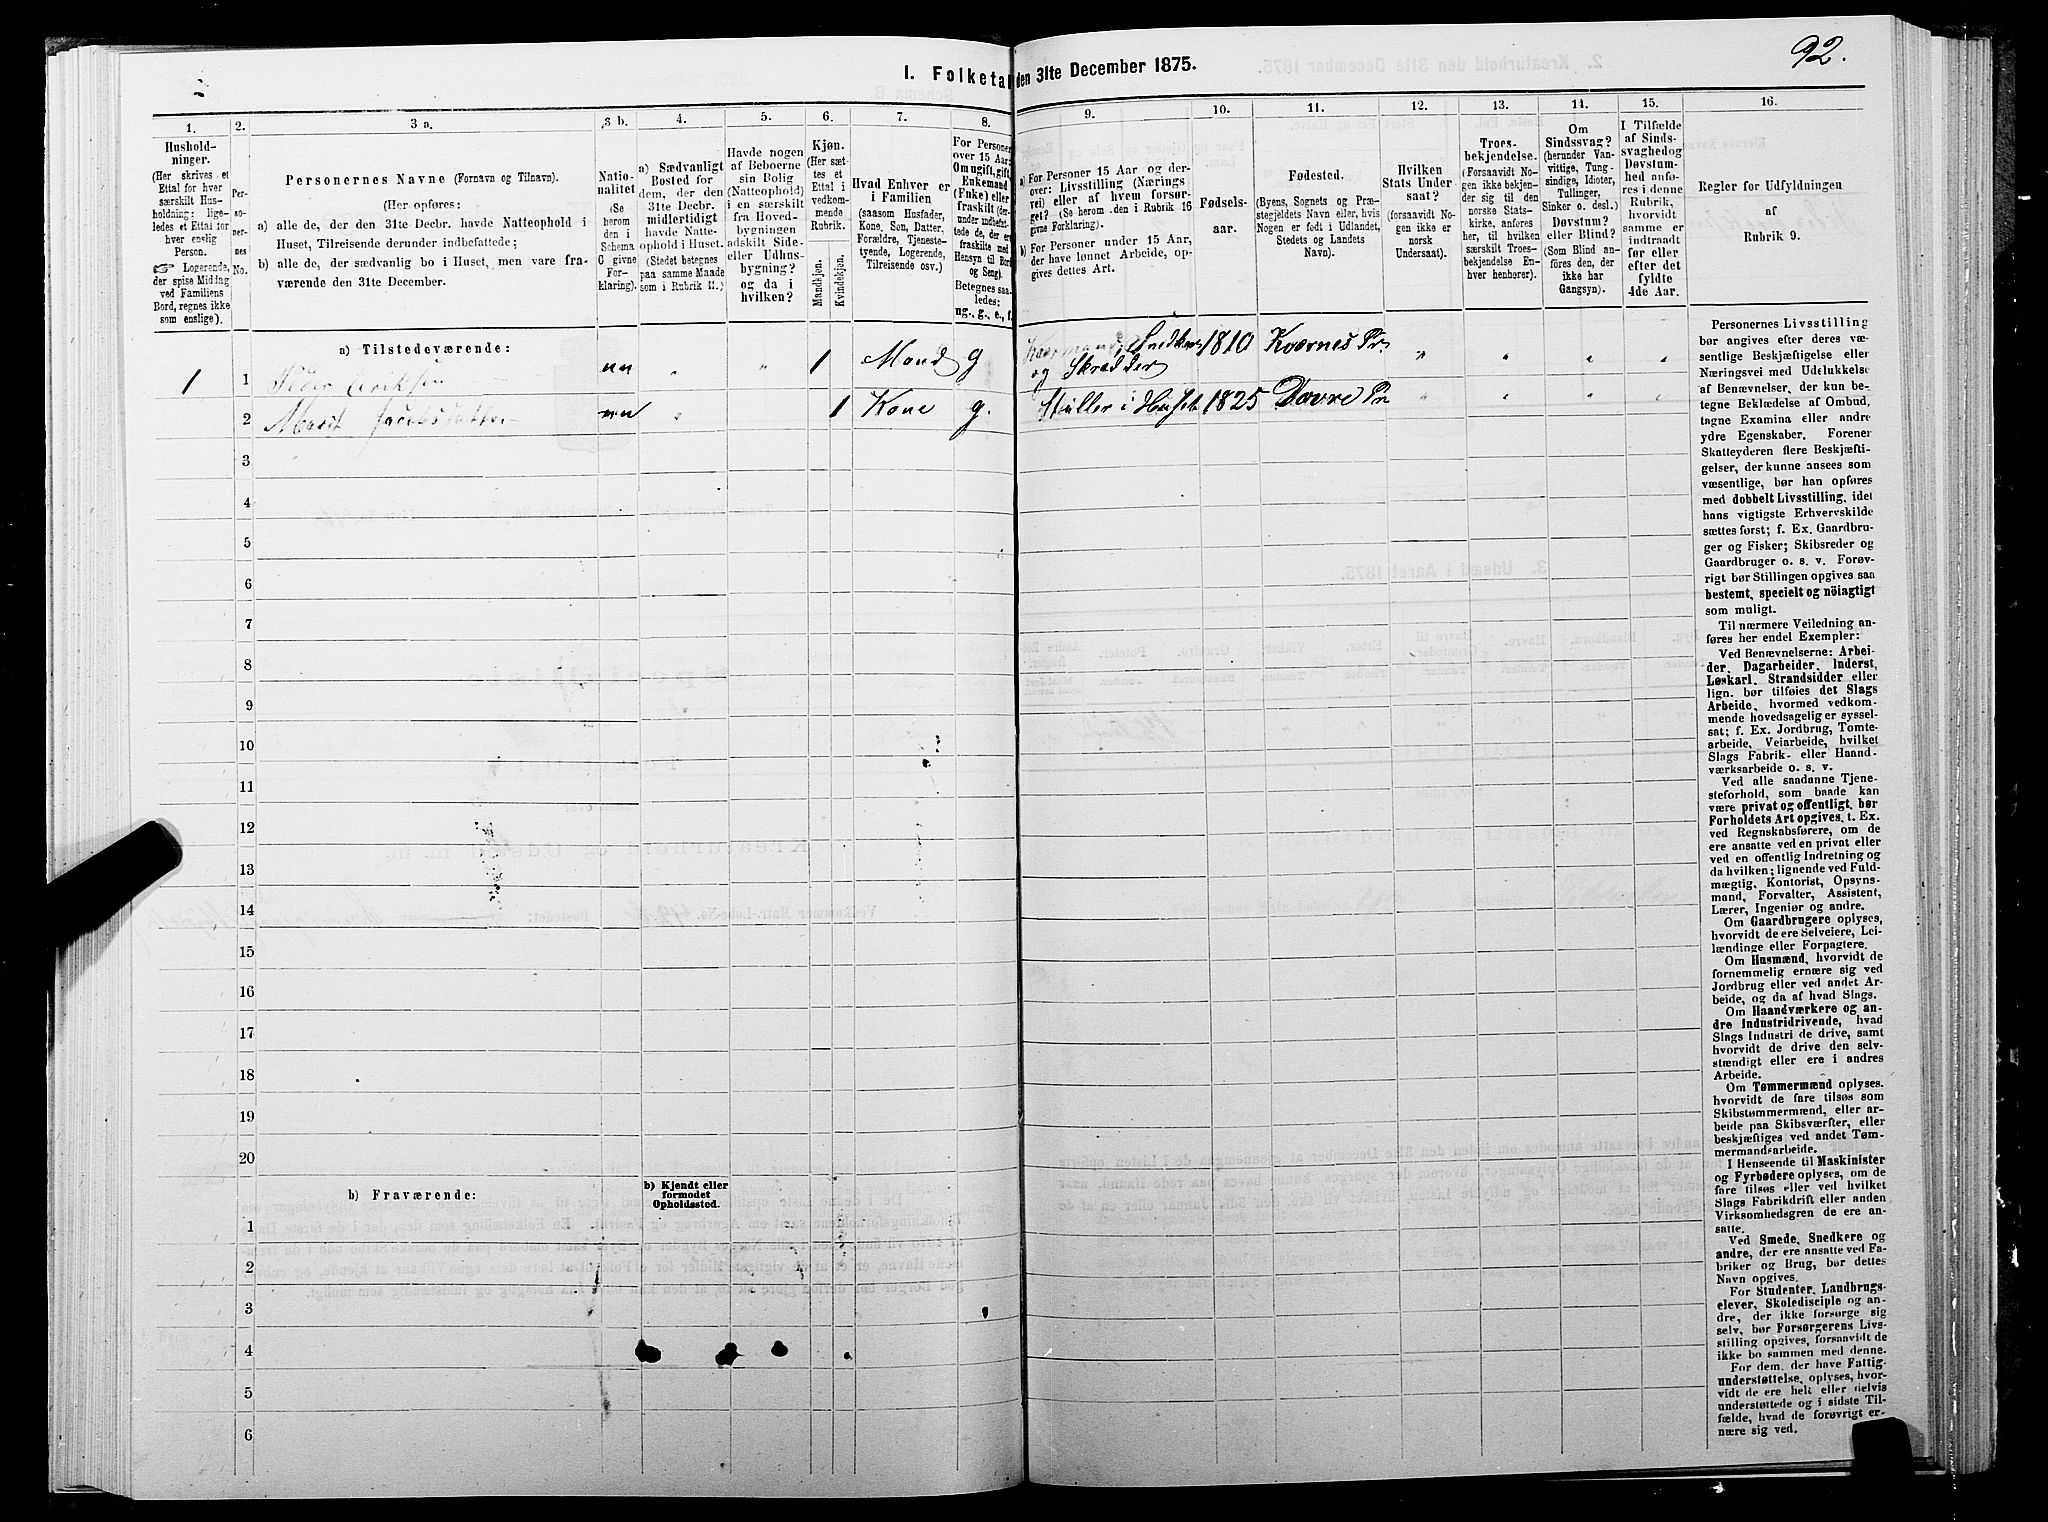 92.
I. Folketa
den 31te December 1875.
1.
Hushold-
ninger.
(Her skrives et
Ettal for hver
særskilt Hus-
holdning; lige-
ledes et Ettal for
hver enslig
Person.
☞ Logerende,
der spise Middag
ved Familiens
Bord, regnes ikke
som enslige).
2.
Per-
so-
ner-
nes
No.
3 a.
Personernes Navne (Fornavn og Tilnavn).
(Her opføres:
a) alle de, der den 31te Decbr. havde Natteophold i
Huset, Tilreisende derunder indbefattede;
b) alle de, der sædvanlig bo i Huset, men vare fra-
værende den 31te December.
3 b.
Natio-
nalitet
(Se
herom
den i
Schema
C givne
For-
klaring).
4.
a) Sædvanligt
Bosted for
dem, der den
31te Decbr.
midlertidigt
havde Natte-
ophold i Huset.
(Stedet betegnes
paa samme Maade
som i Rubrik 11.)
5.
Havde nogen
af Beboerne
sin Bolig
(Natteophold)
i en særskilt
fra Hoved-
bygningen
adskilt Side-
eller Udhus-
bygning?
og da i
hvilken?
6.
Kjøn.
(Her sæt-
tes et
Ettal i
vedkom-
mende
Rubrik.
Mandkjøn.
Kvindekjøn.
7.
Hvad Enhver er
i Familien
(saasom Husfader,
Kone, Søn, Datter,
Forældre, Tjeneste-
tyende, Logerende,
Tilreisende osv.)
8.
For Personer
over 15 Aar:
Om ugift, gift,
Enkemand
(Enke) eller
fraskilt (der-
under indbefat-
tede de, der ere
fraskilte med
Hensyn til Bord
og Seng).
Betegnes saa-
ledes:
ug., g., e., f.
9.
a) For Personer 15 Aar og der-
over: Livsstilling (Nærings
vei) eller af hvem forsør-
get? (Se herom den i Rubrik 16
givne Forklaring).
b) For Personer under 15 Aar,
der have lønnet Arbeide, op-
gives dettes Art.
10.
Fødsels-
aar.
11.
Fødested.
(Byens, Sognets og Præ-
stegjeldets Navn eller, hvis
Nogen er født i Udlandet,
Stedets og Landets
Navn).
12.
Hvilken
Stats Under-
saat?
(forsaavidt No-
gen ikke er
norsk
Undersaat).
13.
Troes-
bekjendelse.
(Forsaavidt No-
gen ikke bekjen-
der sig til den
norske Stats-
kirke, anføres
her, til hvilken
særskilt Troes-
bekjendelse En-
hver henhører).
14.
Om
Sindssvag?
(herunder Van-
vittige, Tung-
sindige, Idioter,
Tullinger,
Sinker o. desl.)
Døvstum?
eller Blind?
(Som Blind an-
føres den, der
ikke har
Gangsyn).
15.
I Tilfælde
af Sinds-
svaghed og
Døvstum-
hed anfø-
res i denne
Rubrik,
hvorvidt
samme er
indtraadt
før eller
efter det
fyldte
4de Aar.
16.
Regler for Udfyldningen
af
Rubrik 9.
a) Tilstedeværende:
1 1 Peder Eriksen nn „ „ 1 Mand g Snedker 1810 Kværnes Pr. „ „ „ „
og Skrædder
2 Marit Jacobsdatter nn „ 1 Kone g. Stiller i Huset 1825 Dovre Pr „ „ „ „
3
4
5
6
7
8
9
10
11
12
13
14
15
16
17
18
19
20
b) Fraværende:
b) Kjendt eller
formodet
Opholdssted.
1
2
3
4
5
6
Personernes Livsstilling
bør angives efter deres væ-
sentlige Beskjæftigelse eller
Næringsvei med Udelukkelse
af Benævnelser, der kun be-
tegne Beklædelse af Ombud,
tagne Examina eller andre
ydre Egenskaber. Forener
Skatteyderen flere Beskjæfti-
gelser, der kunne ansees som
væsentlige, bør han opføres
med dobbelt Livsstilling, idet
hans vigtigste Erhvervskilde
sættes først; f. Ex. Gaardbru-
ger og Fisker; Skibsreder og
Gaardbruger o. s. v. Forøv-
rigt bør Stillingen opgives saa
bestemt, specielt og nöiagtigt
som muligt.
Til nærmere Veiledning an-
føres her endel Exempler:
Ved Benævnelserne: Arbei-
der, Dagarbeider, Inderst,
Løskarl, Strandsidder eller
lign. bør tilføies det Slags
Arbeide, hvormed vedkom-
mende hovedsagelig er syssel-
sat; f. Ex. Jordbrug, Tomte-
arbeide, Veiarbeide, hvilket
Slags Fabrik- eller Haand-
værksarbeide o. s. v.
Ved alle saadanne Tjene-
steforhold, som baade kan
være privat og offentligt, bør
Forholdets Art opgives, t. Ex.
ved Regnskabsførere, om de
ere ansatte ved en privat eller
ved en offentlig Indretning og
da hvilken; lignende ved Fuld-
mægtig, Kontorist, Opsyns-
mand, Forvalter, Assistent,
Lærer, Ingeniør og andre.
Om Gaardbrugere oplyses,
hvorvidt de ere Selveiere, Lei-
lændinge eller Forpagtere.
Om Husmænd, hvorvidt de
fornemmelig ernære sig ved
Jordbrug eller ved andet Ar-
beide, og da af hvad Slags.
Om Haandværkere og an-
dre Industridrivende, hvad
Slags Industri de drive, samt
hvorvidt de drive den selv-
stændigt eller ere i andres
Arbeide.
Om Tømmermænd oplyses,
hvorvidt de fare tilsøs som
Skibstømmermænd, eller ar-
beide paa Skibsværfter, eller
beskjæftiges ved andet Tøm-
mermandsarbeide.
I Henseende til Maskinister
og Fyrbødere oplyses, om de
fare tilsøs eller ved hvilket
Slags Fabrikdrift eller anden
Virksomhedsgren de ere an-
satte.
Ved Smede, Snedkere og
andre, der ere ansatte ved Fa-
briker og Brug, bør dettes
Navn opgives.
For Studenter, Landbrugs-
elever, Skoledisciple og an-
dre, der ikke forsørge sig
selv, bør Forsørgerens Livs-
stilling opgives, forsaavidt de
ikke bo sammen med denne.
For dem, der have Fattig-
understøttelse, oplyses, hvor-
vidt de ere helt eller delvis
understøttede og i sidste Til-
fælde, hvad de forøvrigt er-
nære sig ved.